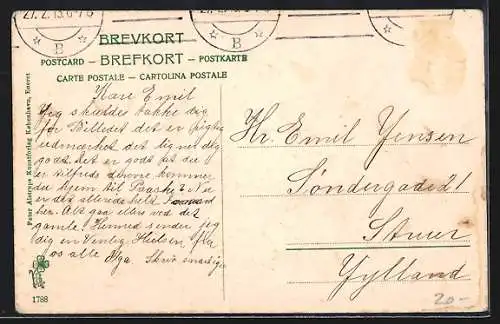 27. 2. 13. 6-7 E
B
B
BREVKORT
POSTCARD – BREFKORT – POSTKARTE
CARTE POSTALE – CARTOLINA POSTALE
Kære Emil
Jeg skulde takke dig
for Billedet det er rigtig
udmærket det ligner dig
godt. Det er godt at du
er tilfreds derovre kommer
du hjem til Paaske?
er det allerede helt
her. Alt gaa ellers ved det
gamle. Hermed sender jeg
dig en Venlig Hilsen fra
os alle Olga. Skriv snarlig
Hr. Emil Jensen
Søndergade 21
Struer
Jylland
20-
Peter Alstrups Kunstforlag København, Eneret
1788